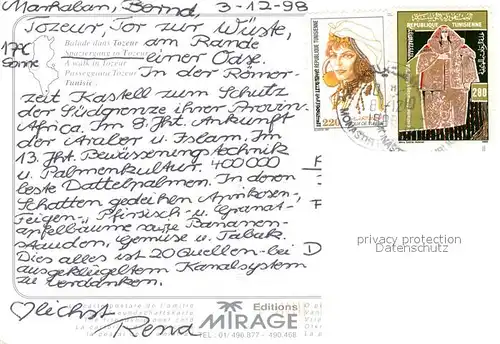 Markalan, Bernd, 3-12-98
Tozeur, Tor zur Wüste,
17°C am Rande
Sonne einer Oase.
Balade dans Tozeur
Spaziergang in Tozeur
A walk in Tozeur
Passeggiata Tozeur
Tunisie
In der Römer-
zeit Kastell zum Schutz
der Südgrenze ihrer Provinz
Africa. Im 8. Jht. Ankunft
der Araber u. Islam. Im
13. Jht. Bewässerungstechnik
u. Palmenkultur. 400000
beste Dattelpalmen. In deren
Schatten gedeihen Aprikosen-
Feigen-, Pfirsich- u. Granat-
apfelbäume sowie Bananen-
stauden, Gemüse u. Tabak.
Dies alles ist 20 Quellen-bei
ausgeklügeltem Kanalsystem
zu verdanken.
♡lichst
Rena
REPUBLIQUE TUNISIENNE
220
REPUBLIQUE TUNISIENNE
280
MONASTIR
F
F
D
privacy protection
Datenschutz
Editions
MIRAGE
TEL : 01/ 496.877 - 490.468